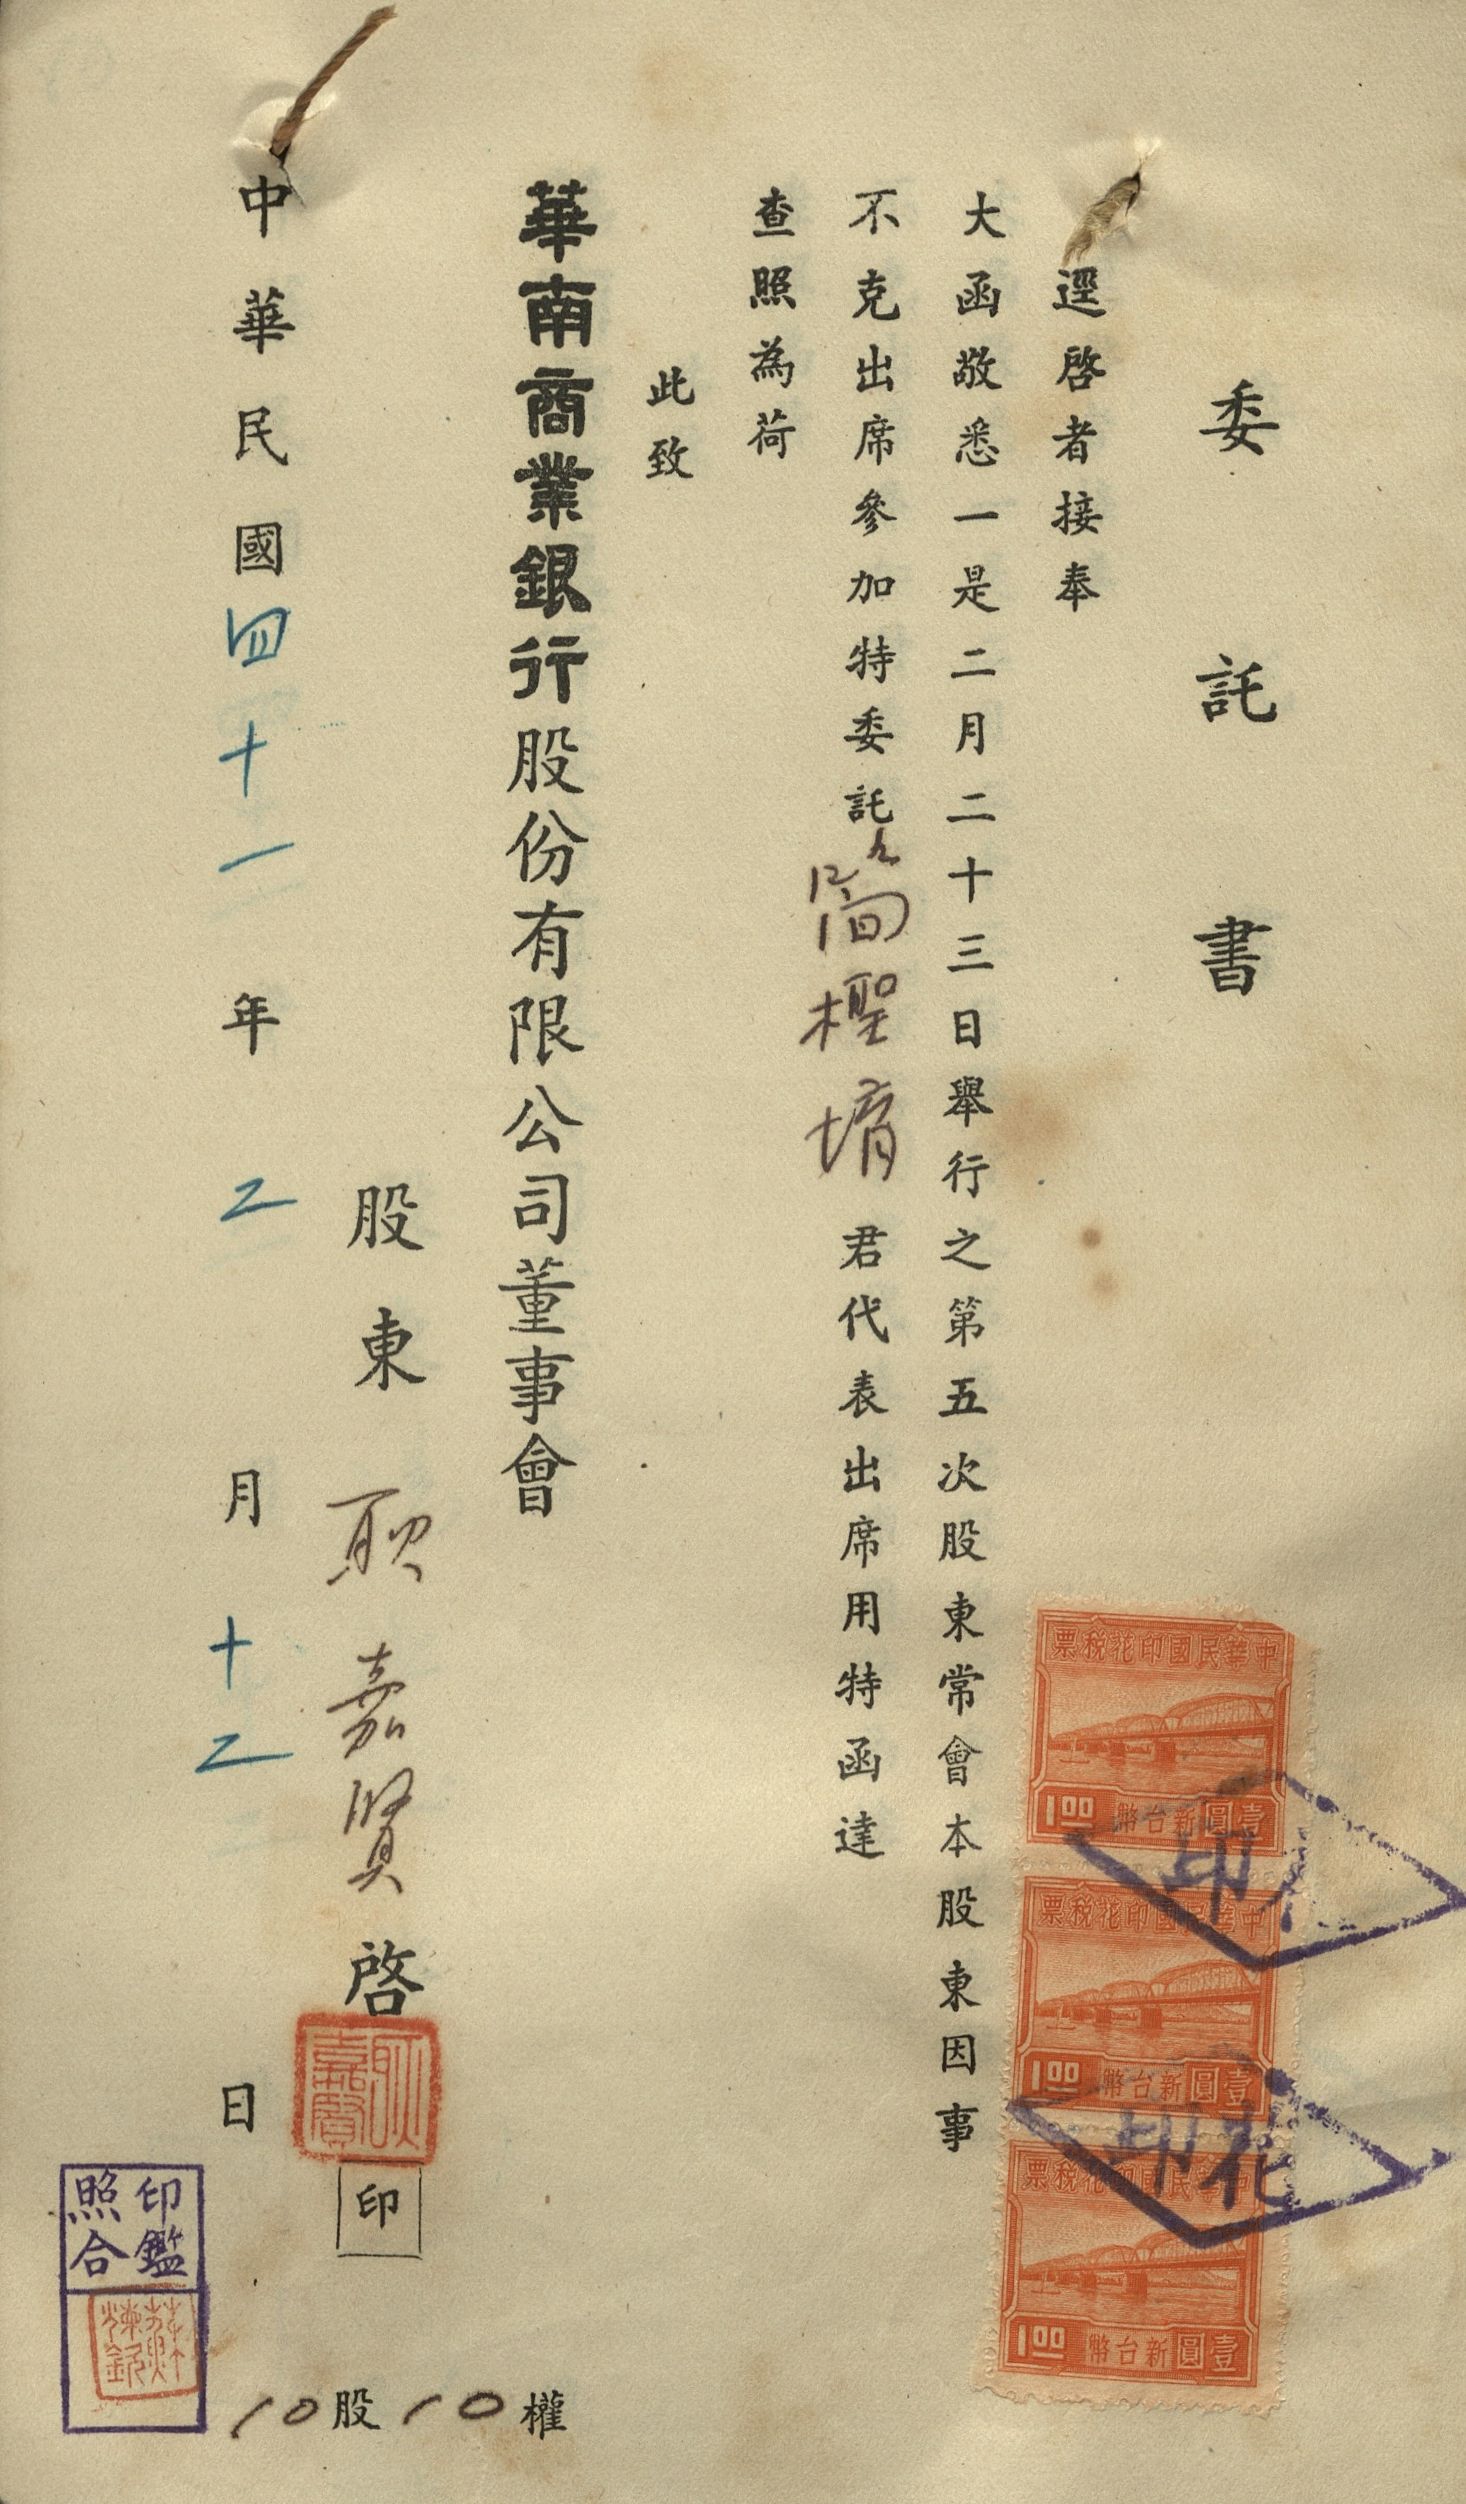 委託書
逕啓者接奉
大函敬悉一是二月二十三日舉行之第五次股東常會本股東因事
不克出席參加特委託簡檉堉君代表出席用特函達
查照為荷
此致
華南商業銀行股份有限公司董事會
股東 耿嘉賢 啓
印
中華民國四十一年二月十二日
10股10權
印鑑
照合
中華民國印花稅票
壹圓新台幣
1.00
印花
中華民國印花稅票
壹圓新台幣
1.00
印花
中華民國印花稅票
壹圓新台幣
1.00